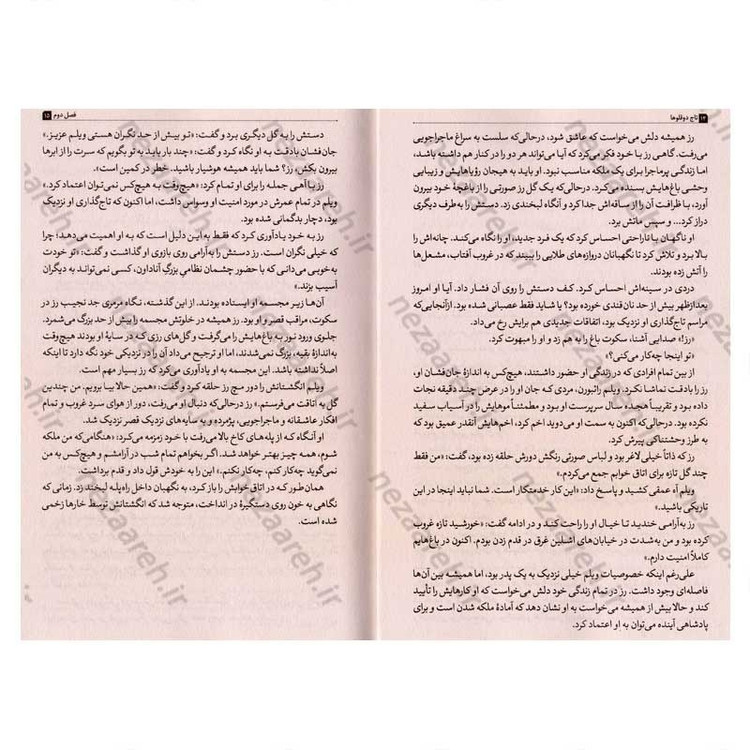 ۱۴ تاج دوقلوها
رز همیشه دلش می‌خواست که عاشق شود، درحالی‌که سلست به سراغ ماجراجویی
می‌رفت. گاهی رز با خود فکر می‌کرد که آیا می‌تواند هر دو را در کنار هم داشته باشد،
اما زندگی پرماجرا برای یک ملکه مناسب نبود. او باید به هیجان رؤیاهایش و زیبایی
وحشی باغ‌هایش بسنده می‌کرد. درحالی‌که یک گل رز صورتی را از باغچهٔ خود بیرون
آورد، با ظرافت آن را از ساقه‌اش جدا کرد و آنگاه لبخندی زد. دستش را به‌طرف دیگری
دراز کرد... و سپس ماتش برد.
او ناگهان با ناراحتی احساس کرد که یک فرد جدید، او را نگاه می‌کند. چانه‌اش را
بالا برد و تلاش کرد تا نگهبانان دروازه‌های طلایی را ببیند که در غروب آفتاب، مشعل‌ها
را آتش زده بودند.
دردی در سینه‌اش احساس کرد. کف دستش را روی آن فشار داد. آیا او امروز
بعدازظهر بیش از حد نان‌قندی خورده بود؟ یا شاید فقط عصبانی شده بود. ازآنجایی‌که
مراسم تاج‌گذاری او نزدیک بود، اتفاقات جدیدی هم برایش رخ می‌داد.
«رز!» صدایی آشنا، سکوت باغ را به هم زد و او را مبهوت کرد.
«تو اینجا چه‌کار می‌کنی؟»
از بین تمام افرادی که در زندگی او حضور داشتند، هیچ‌کس به اندازهٔ جان‌فشان او،
رز را بادقت تماشا نکرد. ویلم راتبورن، مردی که جان او را در عرض چند دقیقه نجات
داده بود و تقریباً هجده سال سرپرست او بود و مطمئناً موهایش را در آسیاب سفید
نکرده بود. درحالی‌که اکنون به سمت او می‌دوید اخم کرد، اخم‌هایش آنقدر عمیق بود که
به طرز وحشتناکی پیرش کرد.
رز که ذاتاً خیلی لاغر بود و لباس صورتی رنگش دورش حلقه زده بود، گفت: «من فقط
چند گل تازه برای اتاق خوابم جمع می‌کردم.»
ویلم آه عمقی کشید و پاسخ داد: «این کار خدمتکار است. شما نباید اینجا در این
تاریکی باشید.»
رز به‌آرامی خندید تا خیال او را راحت کند و در ادامه گفت: «خورشید تازه غروب
کرده بود و من به‌شدت در خیابان‌های اشلین غرق در قدم زدن بودم. اکنون در باغ‌هایم
کاملاً امنیت دارم.»
علی‌رغم اینکه خصوصیات ویلم خیلی نزدیک به یک پدر بود، اما همیشه بین آن‌ها
فاصله‌ای وجود داشت. رز در تمام زندگی خود دلش می‌خواست که او کارهایش را تأیید
کند و حالا بیش از همیشه می‌خواست به او نشان دهد که آمادهٔ ملکه شدن است و برای
پادشاهی آینده می‌توان به او اعتماد کرد.
فصل دوم ۱۵
دستش را به گل دیگری برد و گفت: «تو بیش از حد نگران هستی ویلم عزیز.»
جان‌فشان بادقت به او نگاه کرد و گفت: «چند بار باید به تو بگویم که سرت را از ابرها
بیرون بکش، رز؟ شما باید همیشه هوشیار باشید. خطر در کمین است.»
رز با آهی جمله را برای او تمام کرد: «هیچ‌وقت به هیچ‌کس نمی‌توان اعتماد کرد.»
ویلم در تمام عمرش در مورد امنیت او وسواس داشت، اما اکنون که تاج‌گذاری او نزدیک
بود، دچار بدگمانی شده بود.
رز به خود یادآوری کرد که فقط به این دلیل است که به او اهمیت می‌دهد؛ چرا
که خیلی نگران است. رز دستش را به‌آرامی روی بازوی او گذاشت و گفت: «تو خودت
به‌خوبی می‌دانی که با حضور چشمان نظامی بزرگ آناداون، کسی نمی‌تواند به دیگران
آسیب بزند.»
آن‌ها زیر مجسمه او ایستاده بودند. از این گذشته، نگاه مرمزی جد نجیب رز در
سکوت، مراقب قصر و او بود. رز هم همیشه در خلوتش مجسمه را بیش از حد بزرگ می‌شمرد.
جلوی ورود نور به باغ‌هایش را می‌گرفت و گل‌های رزی که در سایهٔ او بودند هیچ‌وقت
به‌اندازهٔ بقیه، بزرگ نمی‌شدند، اما او ترجیح می‌داد آن را در نزدیکی خود نگه دارد تا اینکه
اصلاً نداشته باشد. این مجسمه به او یادآوری می‌کرد که رز بسیار مهم است.
ویلم انگشتانش را دور مچ رز حلقه کرد و گفت: «همین حالا بیا برویم. من چندین
گل به اتاقت می‌فرستم.» رز درحالی‌که دنبال او می‌رفت، دور از هوای سرد غروب و تمام
افکار عاشقانه و ماجراجویی، پژمرده و به سایه‌های نزدیک قصر نزدیک شد.
او آنگاه که از پله‌های کاخ بالا می‌رفت با خود زمزمه می‌کرد: «هنگامی‌که من ملکه
شوم، همه چیز بهتر خواهد شد. اگر بخواهم تمام شب در آرامشم و هیچ‌کس به من
نمی‌گوید چه‌کار کنم، چه‌کار نکنم.» این را به خودش قول داد و قدم برداشت.
همان‌طور که در اتاق‌خوابش را باز کرد، به نگهبان داخل راه‌پله لبخند زد. زمانی که
نگاهی به خون روی دستگیرهٔ در انداخت، متوجه شد که انگشتانش توسط خارها زخمی
شده است.
nezaareh.ir